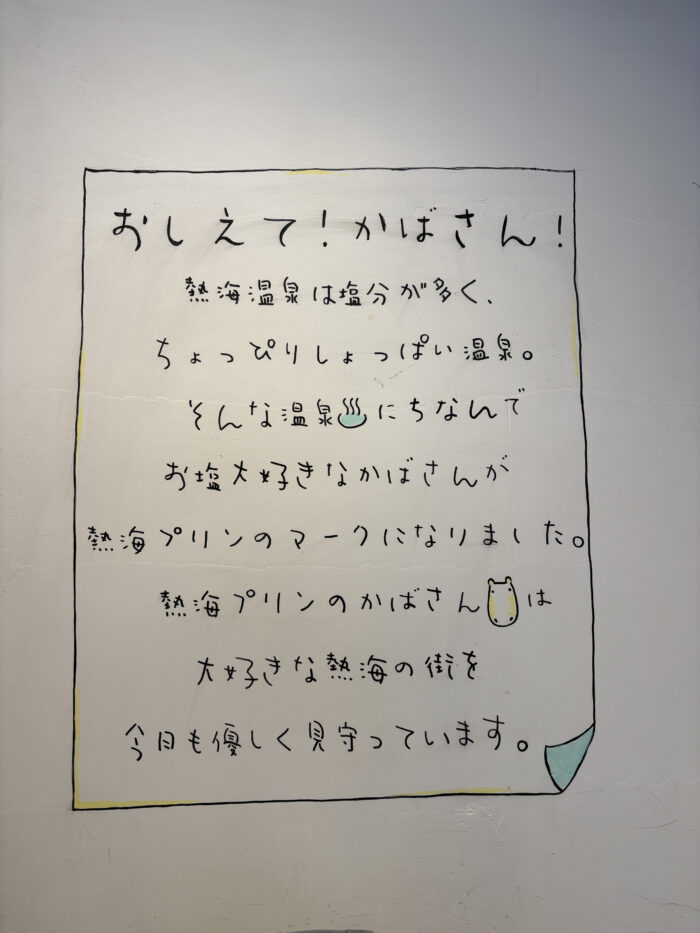 おしえて！かばさん！
熱海温泉は塩分が多く、
ちょっぴりしょっぱい温泉。
そんな温泉♨にちなんで
お塩大好きなかばさんが
熱海プリンのマークになりました。
熱海プリンのかばさんは
大好きな熱海の街を
今日も優しく見守っています。